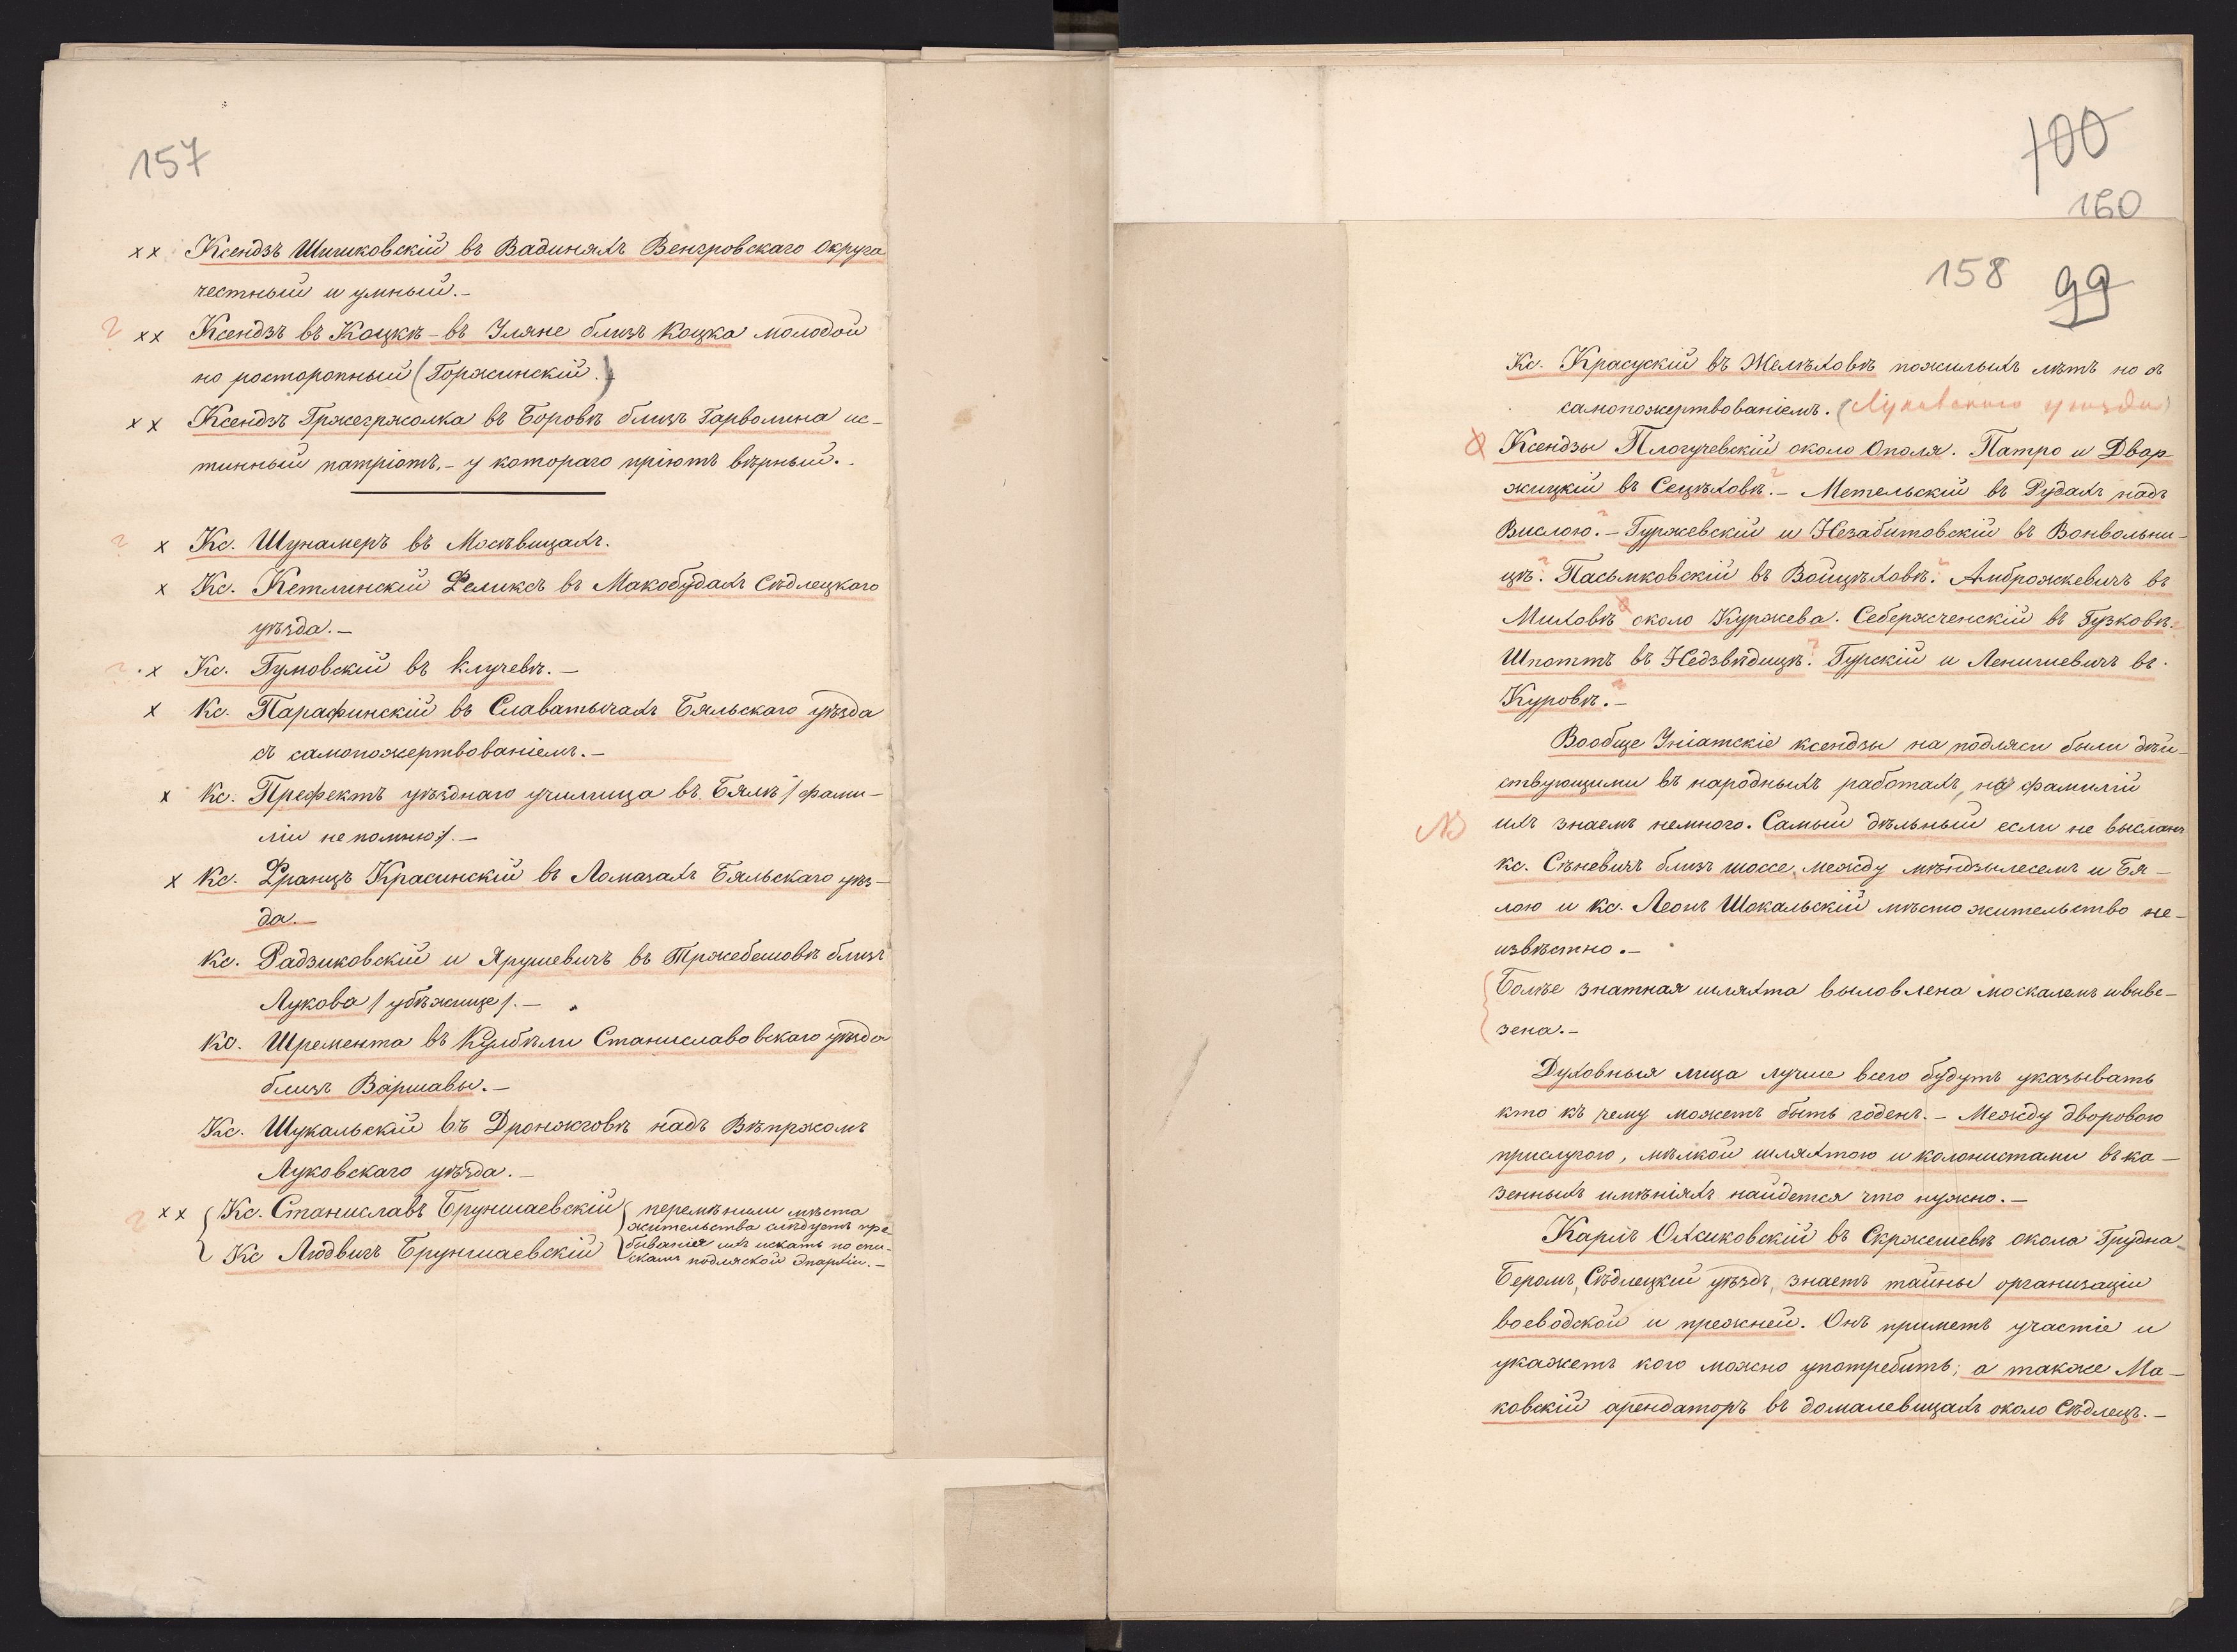 157
xx Ксендзъ Шишковскій въ Вадиняхъ Венгровскаго округа
честный и умный.-
? xx Ксендзъ въ Коцкѣ - въ Уляне близъ Коцка молодой
но расторопный (Горжинскій.)
xx Ксендзъ Гржегржолка въ Боровѣ близъ Гарволина ис-
тинный патріотъ,- у котораго пріютъ вѣрный.-
? x Кс. Шунамеръ въ Мосѣвицахъ.
x Кс. Кетлинскій Феликсъ въ Макобудахъ Сѣдлецкаго
уѣзда.-
? x Кс. Гумовскій въ Ключевѣ.-
x Кс. Парафинскій въ Славатычахъ Бяльскаго уѣзда
съ самопожертвованіемъ.-
x Кс. Префектъ уѣзднаго училища въ Бялѣ /фами-
ліи не помню/.-
x Кс. Францъ Красинскій въ Ломазахъ Бяльскаго уѣз-
да.-
Кс. Радзиковскій и Ярушевичъ въ Тржебешовѣ близъ
Лукова /убѣжище/.-
Кс. Шременta въ Кулбѣли Станиславовскаго уѣзда
близъ Варшавы.-
Кс. Шукальскій въ Дронжговѣ надъ Вѣпржомъ
Луковскаго уѣзда.-
? xx Кс. Станиславъ Бруншаевскій перемѣнили мѣста
жительства слѣдуетъ пре-
Кс Людвигъ Бруншаевскій быванія ихъ искать по спи-
скамъ подляской Эпархіи.-
100
160
158 99
Кс. Красускій въ Желѣховѣ пожилыхъ лѣтъ но съ
самопожертвованіемъ. (Луковскаго уѣзда)
Ксендзы Плогучевскій около Ополя. Патро и Двар-
жицкій въ Сецѣховѣ.?- Метельскій въ Рудахъ надъ
Вислою.?- Гуржевскій и Незабитовскій въ Вонвольни-
цѣ.? Пасьмковскій въ Войцѣховѣ.? Амброжкевичъ въ
Миховѣ около Куржева. Себержченскій въ Гузковѣ.?
Шпоттъ въ Недзвѣдицѣ.? Гурскій и Ленишевичъ въ
Куровѣ.?-
Вообще Уніатскіе ксендзы на подляси были дѣй-
ствующими въ народныхъ работахъ, но фамилій
NB ихъ знаемъ немного. Самый дѣльный если не высланъ
кс. Сѣневичъ близъ шоссе, между мѣндзылесемъ и Бя-
лою и кс. Леонъ Шокальскій мѣсто жительство не-
извѣстно.-
Болѣе знатная шляхта выловлена москалемъ и выве-
зена.-
Духовныя лица лучше всего будутъ указывать
кто къ чему можетъ быть годенъ.- Между дворовою
прислугою, мѣлкой шляхтою и колонистами въ ка-
зенныхъ имѣніяхъ найдется что нужно.-
Карлъ Охсиковскій въ Скржешевѣ окола Грудна-
Беромъ, Сѣдлецкій уѣздъ, знаетъ тайны организаціи
воеводской и прежней. Онъ приметъ участіе и
укажетъ кого можно употребить; а также Ма-
ковскій арендаторъ въ домалевицахъ около Сѣдлецъ.-